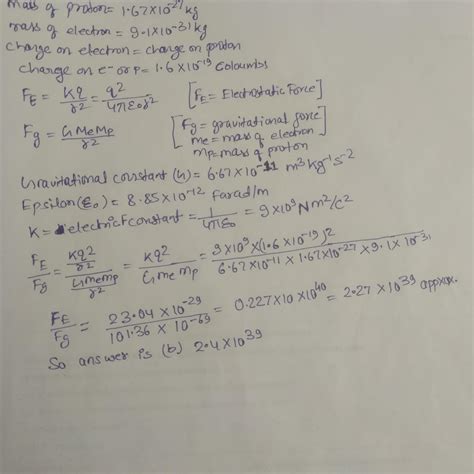 Mass of proton = 1.67×10⁻²⁷ kg
mass of electron = 9.1×10⁻³¹ kg
Charge on electron = charge on proton
Charge on e⁻ or P = 1.6×10⁻¹⁹ Coloumbs
F_E = Kq/r² = q²/4πε₀r² [F_E = Electrostatic Force]
Fg = GMeMp/r² [Fg = gravitational force
me = mass of electron
mp = mass of proton]
Gravitational constant (G) = 6.67×10⁻¹¹ m³kg⁻¹s⁻²
Epsilon (ε₀) = 8.85×10⁻¹² farad/m
K = electric constant = 1/4πε₀ = 9×10⁹ Nm²/c²
F_E/Fg = (Kq²/r²)/(GMeMp/r²) = Kq²/GMeMp = 9×10⁹×(1.6×10⁻¹⁹)²/6.67×10⁻¹¹×1.67×10⁻²⁷×9.1×10⁻³¹
F_E/Fg = 23.04×10⁻²⁹/101.36×10⁻⁶⁹ = 0.227×10×10⁴⁰ = 2.27×10³⁹ approx.
So answer is (b) 2.4×10³⁹